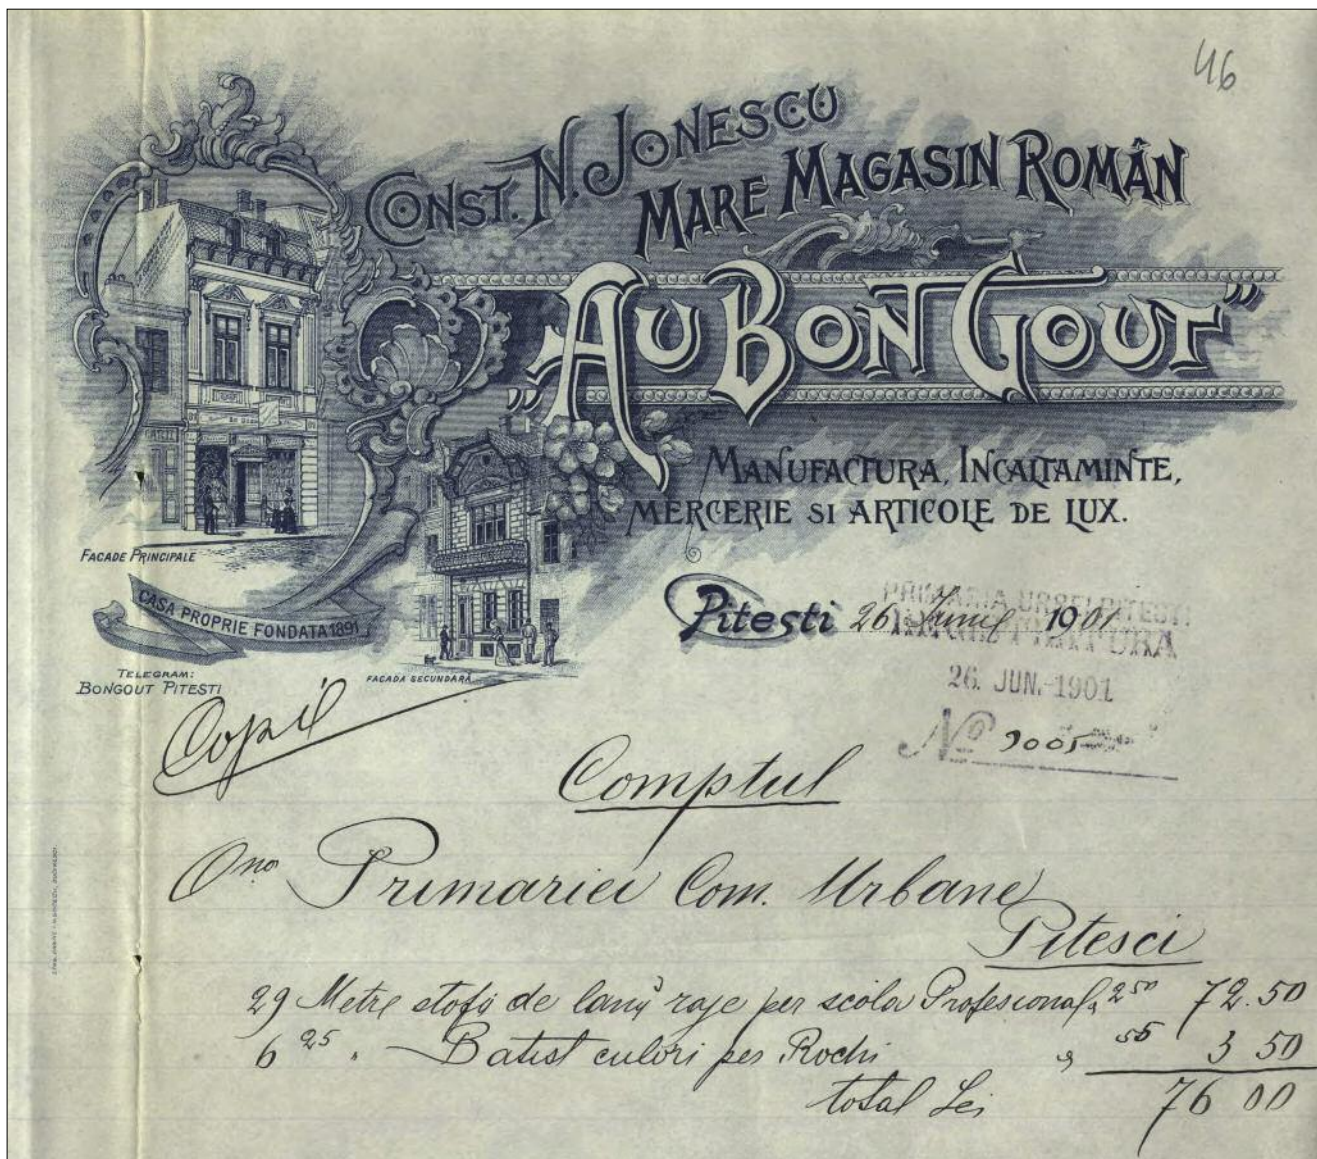 46
CONST. N. JONESCU
MARE MAGASIN ROMÂN
„AU BON GOUT”
MANUFACTURA, INCALTAMINTE,
MERCERIE SI ARTICOLE DE LUX.
FACADE PRINCIPALE
CASA PROPRIE FONDATA 1891
TELEGRAM:
BONGOUT PITESTI
FACADA SECUNDARĂ
Pitești 26 Iunie 1901
PRIMARIA URBEI PITESTI
26. JUN. 1901
No 9005
Copil
Comptul
Ono Primariei Com. Urbane
Pitesci
29 Metre stofă de lană roje per scola Profesională 2 50 72.50
6 25 " Batist culori per Rochi " 55 3 50
total Lei 76 00